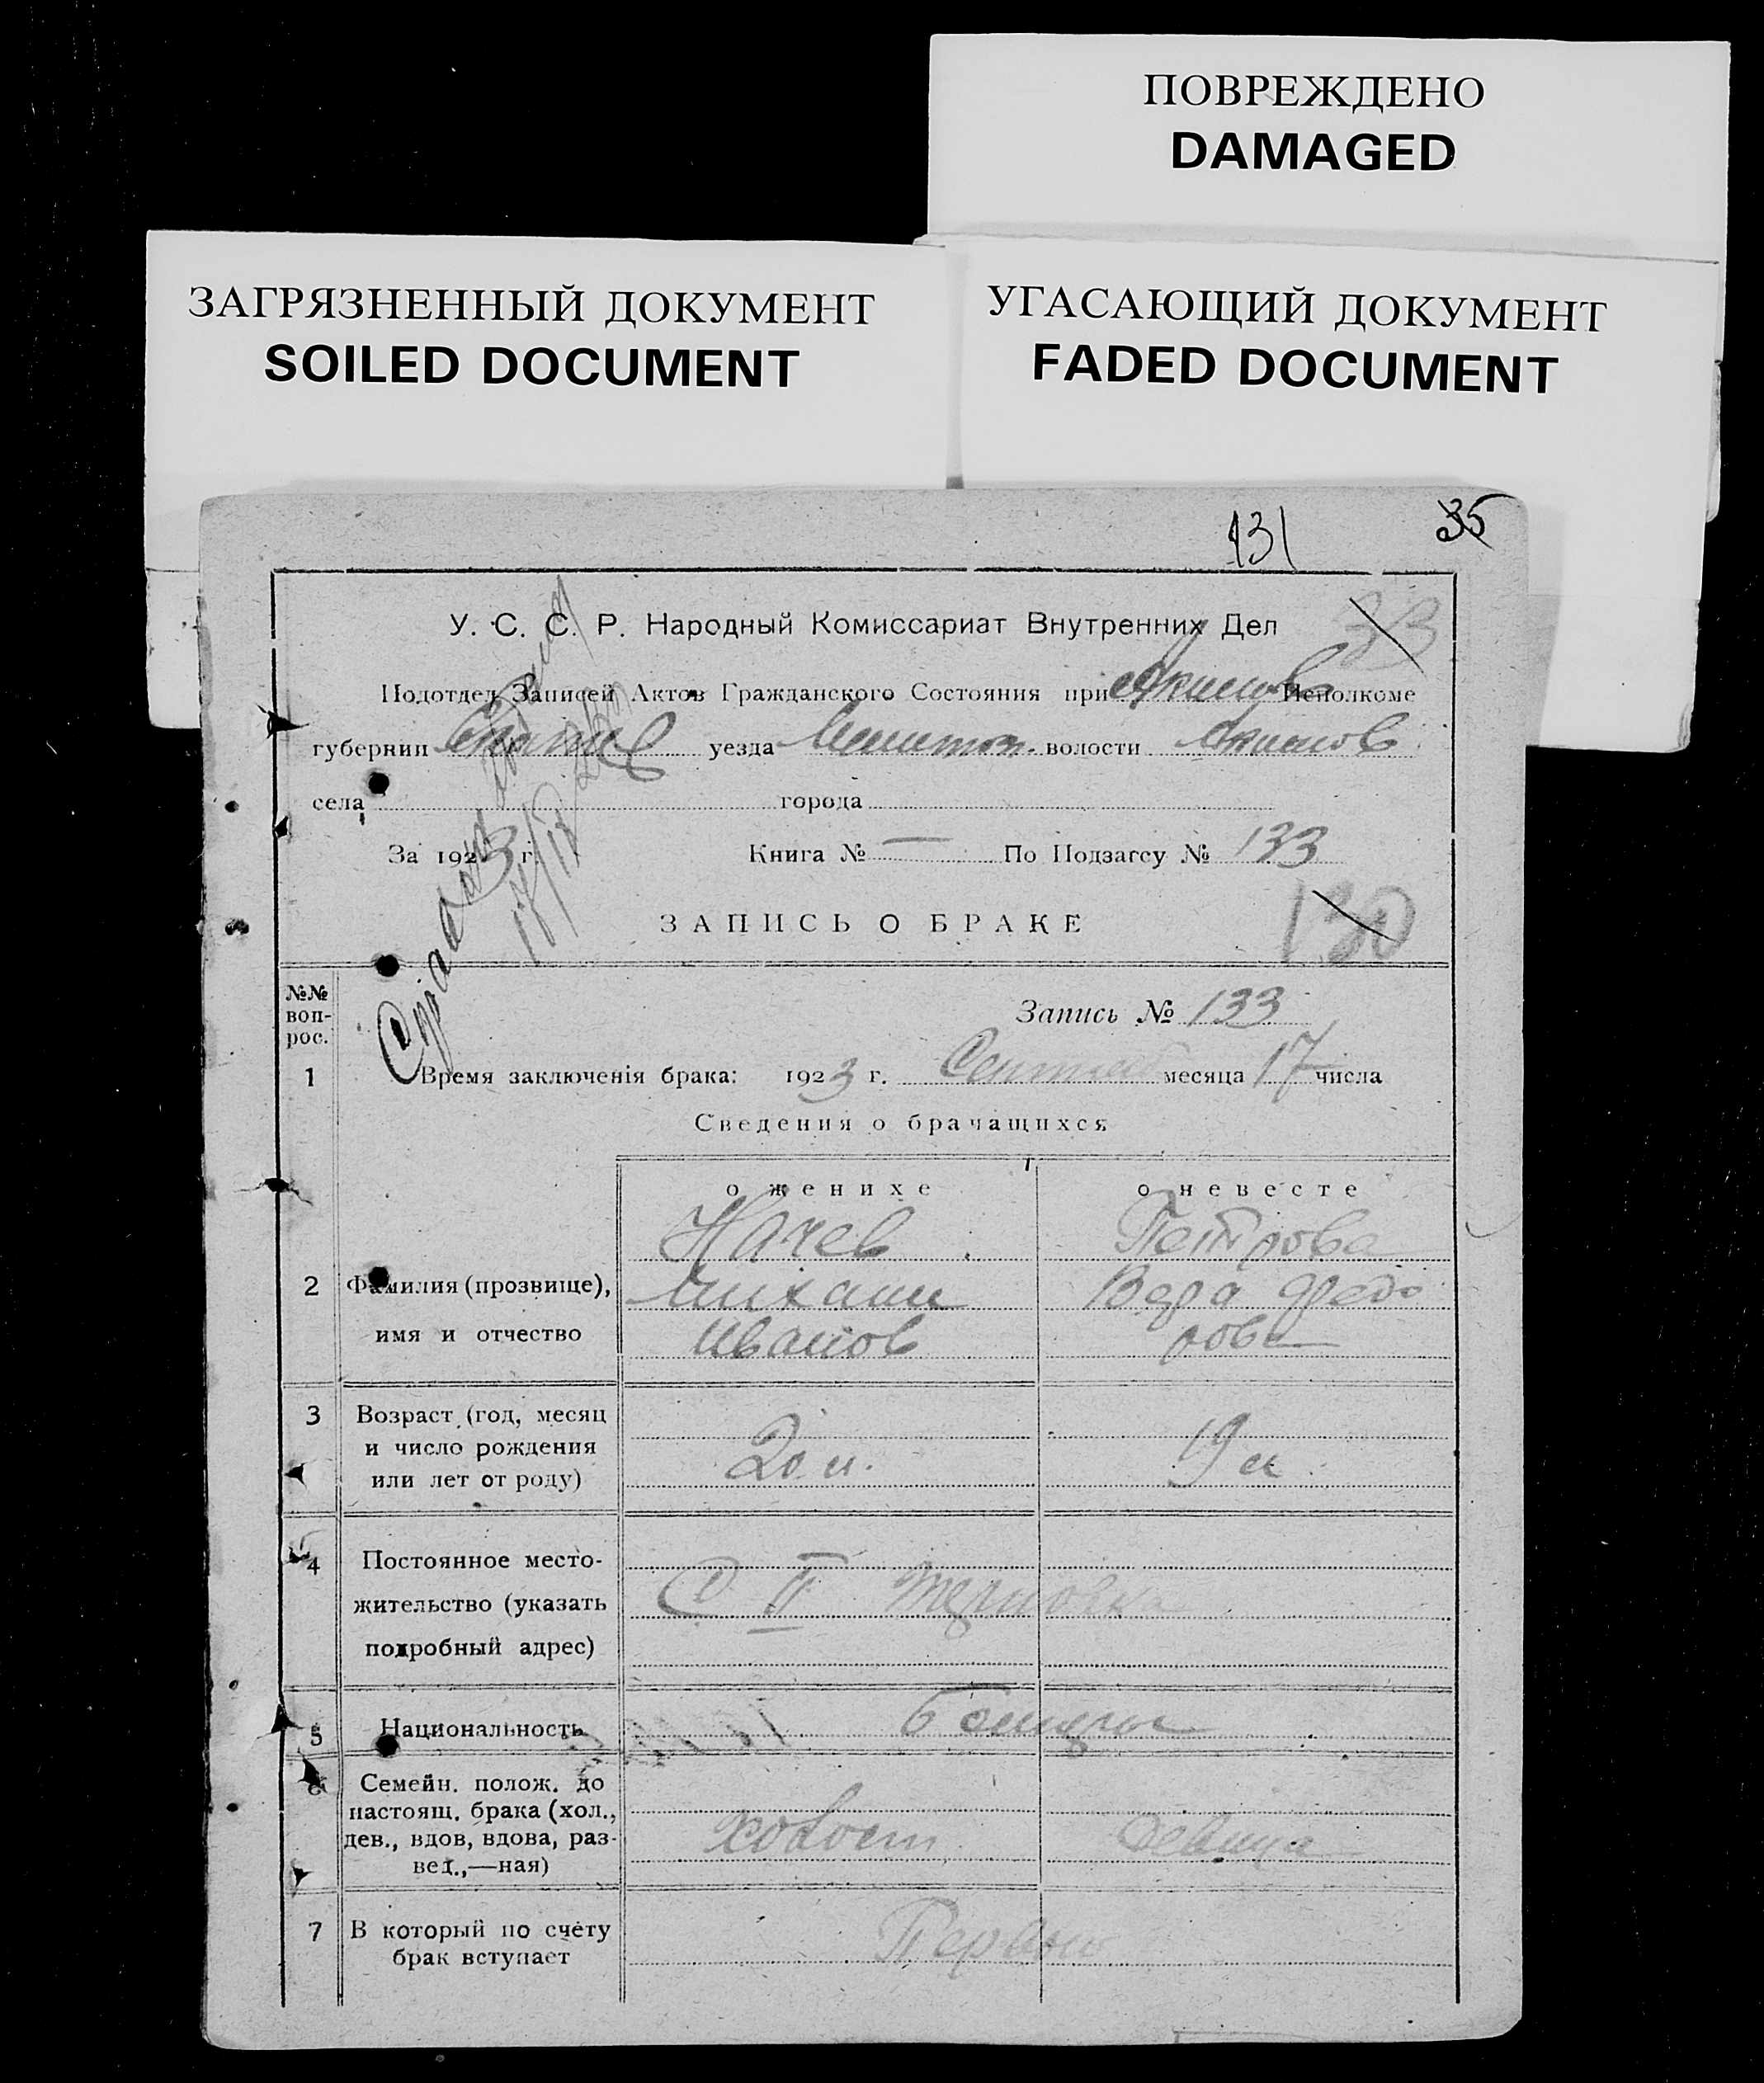 ПОВРЕЖДЕНО
DAMAGED
ЗАГРЯЗНЕННЫЙ ДОКУМЕНТ
SOILED DOCUMENT
УГАСАЮЩИЙ ДОКУМЕНТ
FADED DOCUMENT
131 35
У. С. С. Р. Народный Комиссариат Внутренних Дел 33
Подотдел Записей Актов Гражданского Состояния при Акимов Исполкоме
губернии уезда Мелитоп. волости Акимов
села города
За 1923 г. Книга № — По Подзагсу № 133
ЗАПИСЬ О БРАКЕ 130
№№ воп-рос.
Запись № 133
1 Время заключенія брака: 1923 г. Сентяб месяца 17 числа
Сведения о брачащихся
о женихе о невесте
Начев Петрова
2 Фамилия (прозвище), Михаил Вера Федо
имя и отчество Иванов рова
3 Возраст (год, месяц
и число рождения 20 л. 19 л
или лет от роду)
4 Постоянное место-
жительство (указать С. II Терновка
подробный адрес)
5 Национальность Болгары
6 Семейн. полож. до
настоящ. брака (хол.,
дев., вдов, вдова, раз- холост девица
вед.,—ная)
7 В который по счету Первый
брак вступает